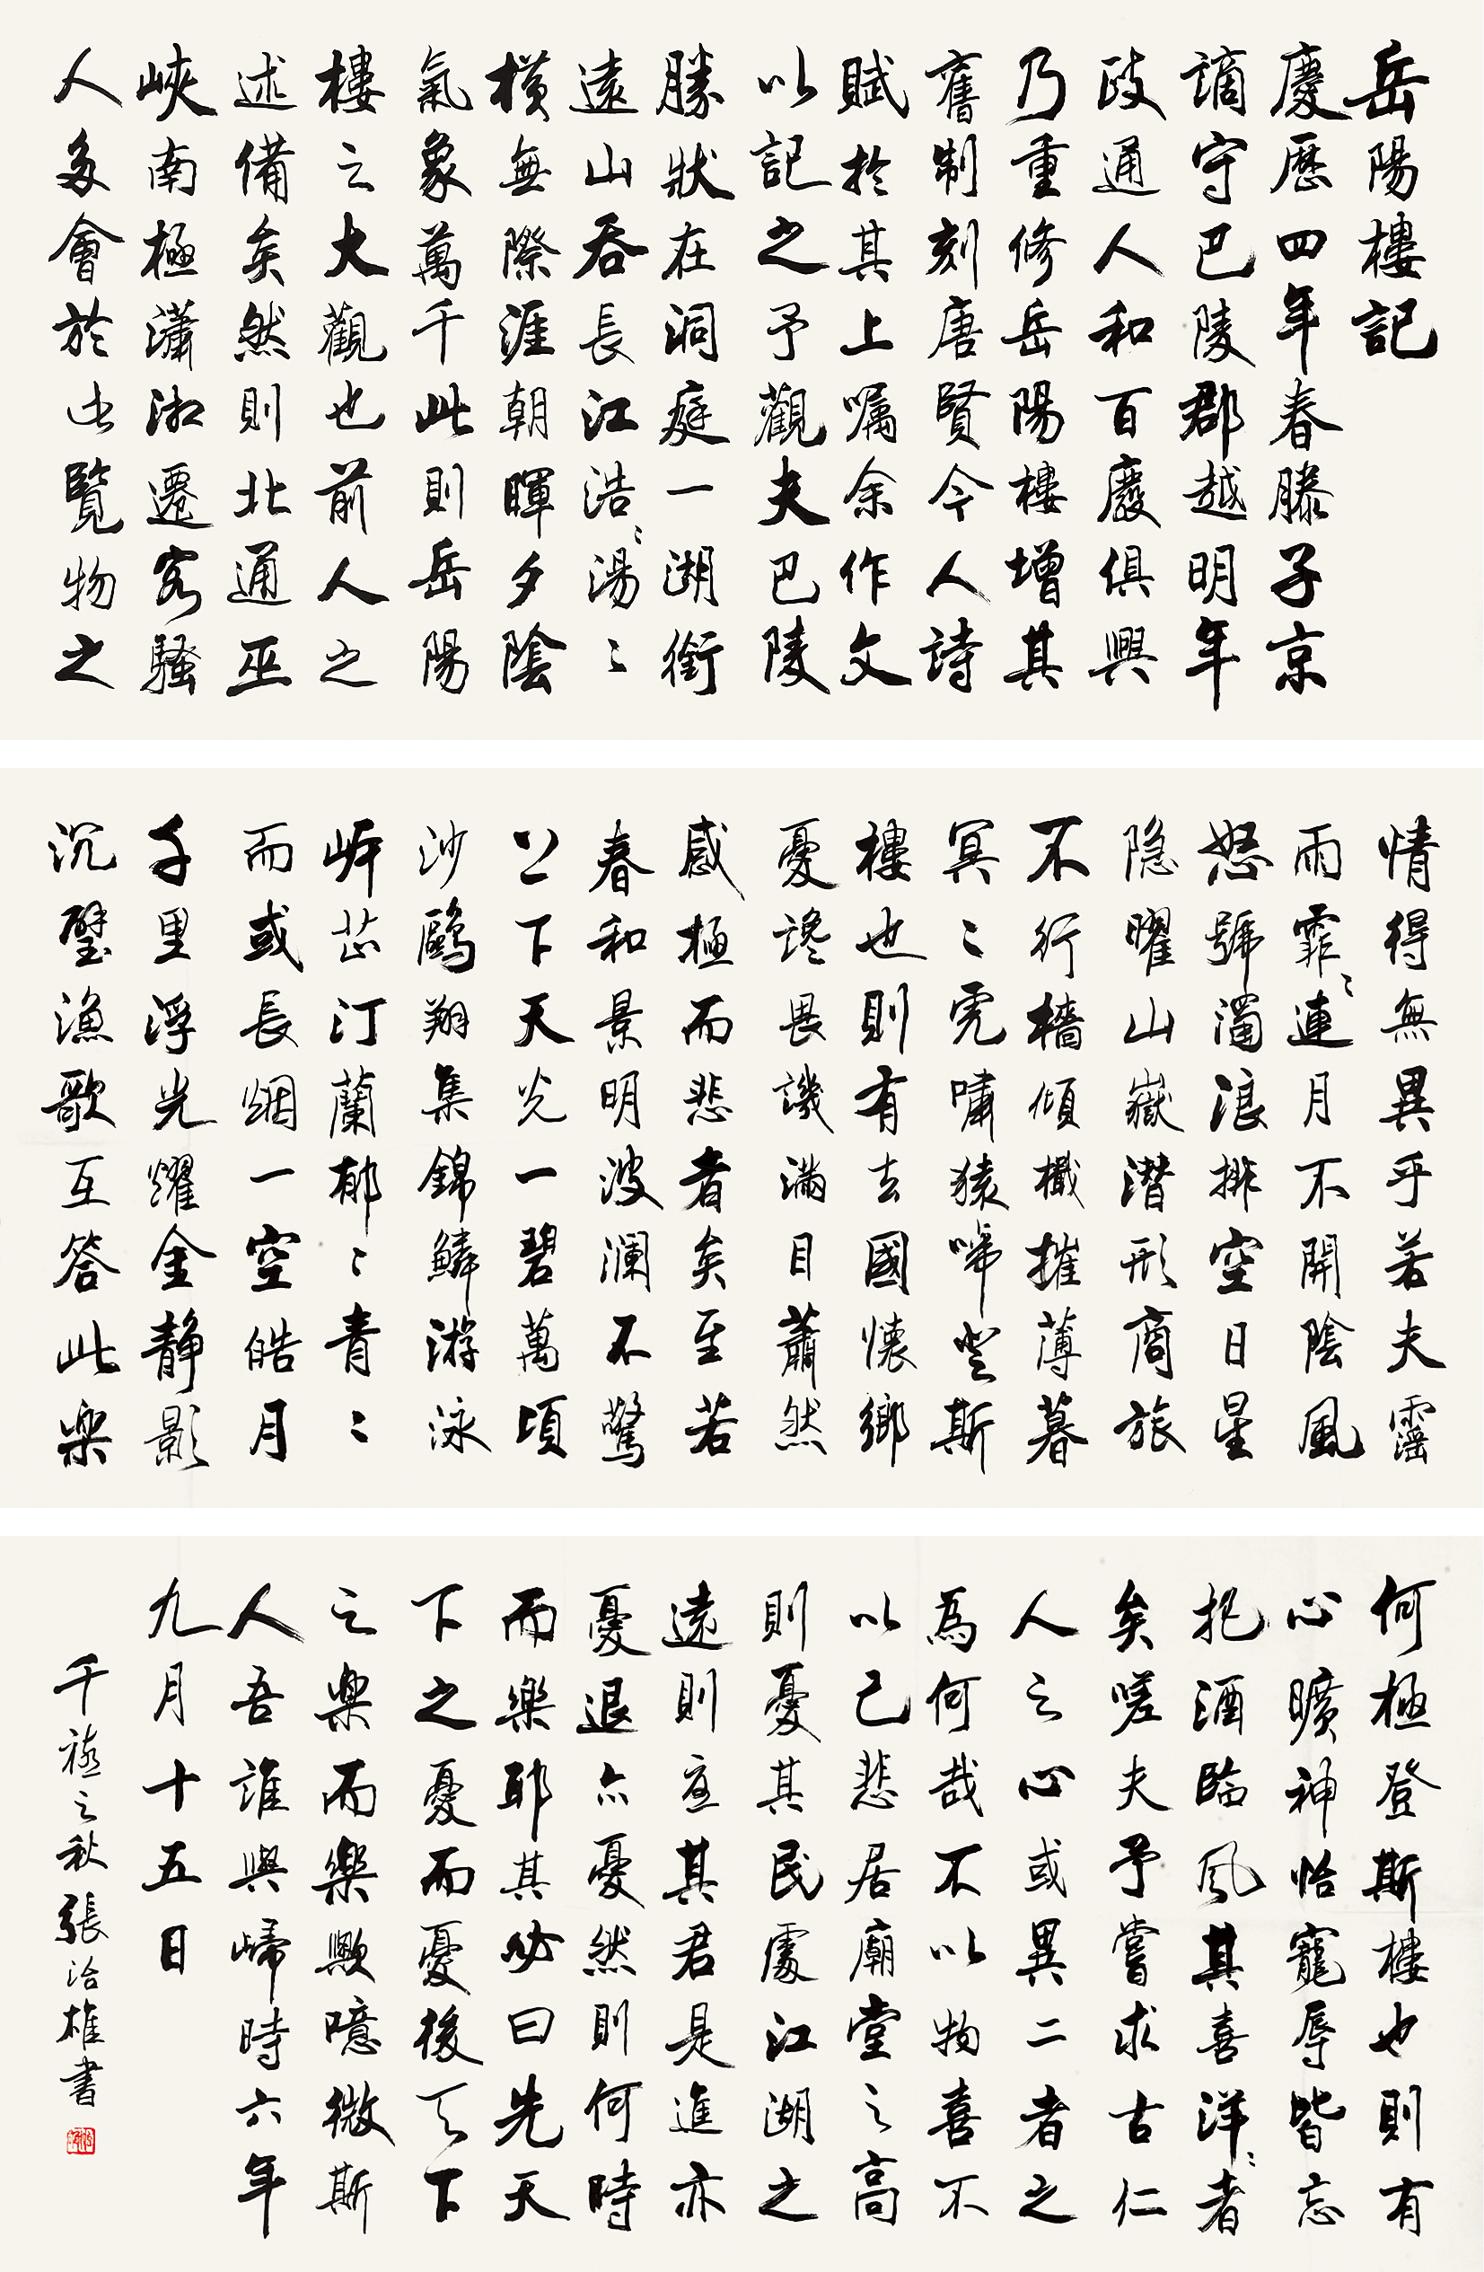 岳陽樓記
慶歷四年春滕子京
謫守巴陵郡越明年
政通人和百廢俱興
乃重修岳陽樓增其
舊制刻唐賢今人詩
賦於其上囑余作文
以記之予觀夫巴陵
勝狀在洞庭一湖銜
遠山吞長江浩〻湯〻
橫無際涯朝暉夕陰
氣象萬千此則岳陽
樓之大觀也前人之
述備矣然則北通巫
峽南極瀟湘遷客騷
人多會於此覽物之
情得無異乎若夫霪
雨霏〻連月不開陰風
怒號濁浪排空日星
隐曜山嶽潛形商旅
不行檣傾檝摧薄暮
冥〻虎嘯猿啼登斯
樓也則有去國懷鄉
憂讒畏譏滿目蕭然
感極而悲者矣至若
春和景明波瀾不驚
上下天光一碧萬頃
沙鷗翔集錦鱗游泳
岸芷汀蘭郁〻青〻
而或長烟一空皓月
千里浮光耀金靜影
沉璧漁歌互答此樂
何極登斯樓也則有
心曠神怡寵辱皆忘
把酒臨風其喜洋〻者
矣嗟夫予嘗求古仁
人之心或異二者之
為何哉不以物喜不
以己悲居廟堂之高
則憂其民處江湖之
遠則憂其君是進亦
憂退亦憂然則何時
而樂耶其必曰先天
下之憂而憂後天下
之樂而樂歟噫微斯
人吾誰與歸時六年
九月十五日
千禧之秋張治雄書